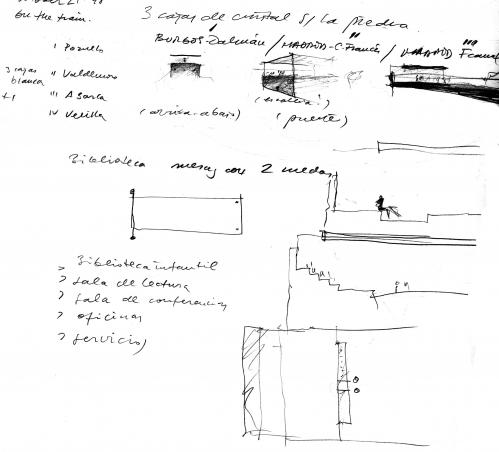 on the train.
3 cajas de cristal s/ la piedra
BURGOS-Dalmáu / MADRID-C. Francés /
I Pozuelo
3 cajas
blancas
II Valdemoro
+1
III Asarca
IV Velilla
(arriba-abajo)
(escalera!)
(puente)
Biblioteca mesas con 2 ruedas
> Biblioteca infantil
> sala de lectura
> sala de conferencias
> oficinas
> servicios